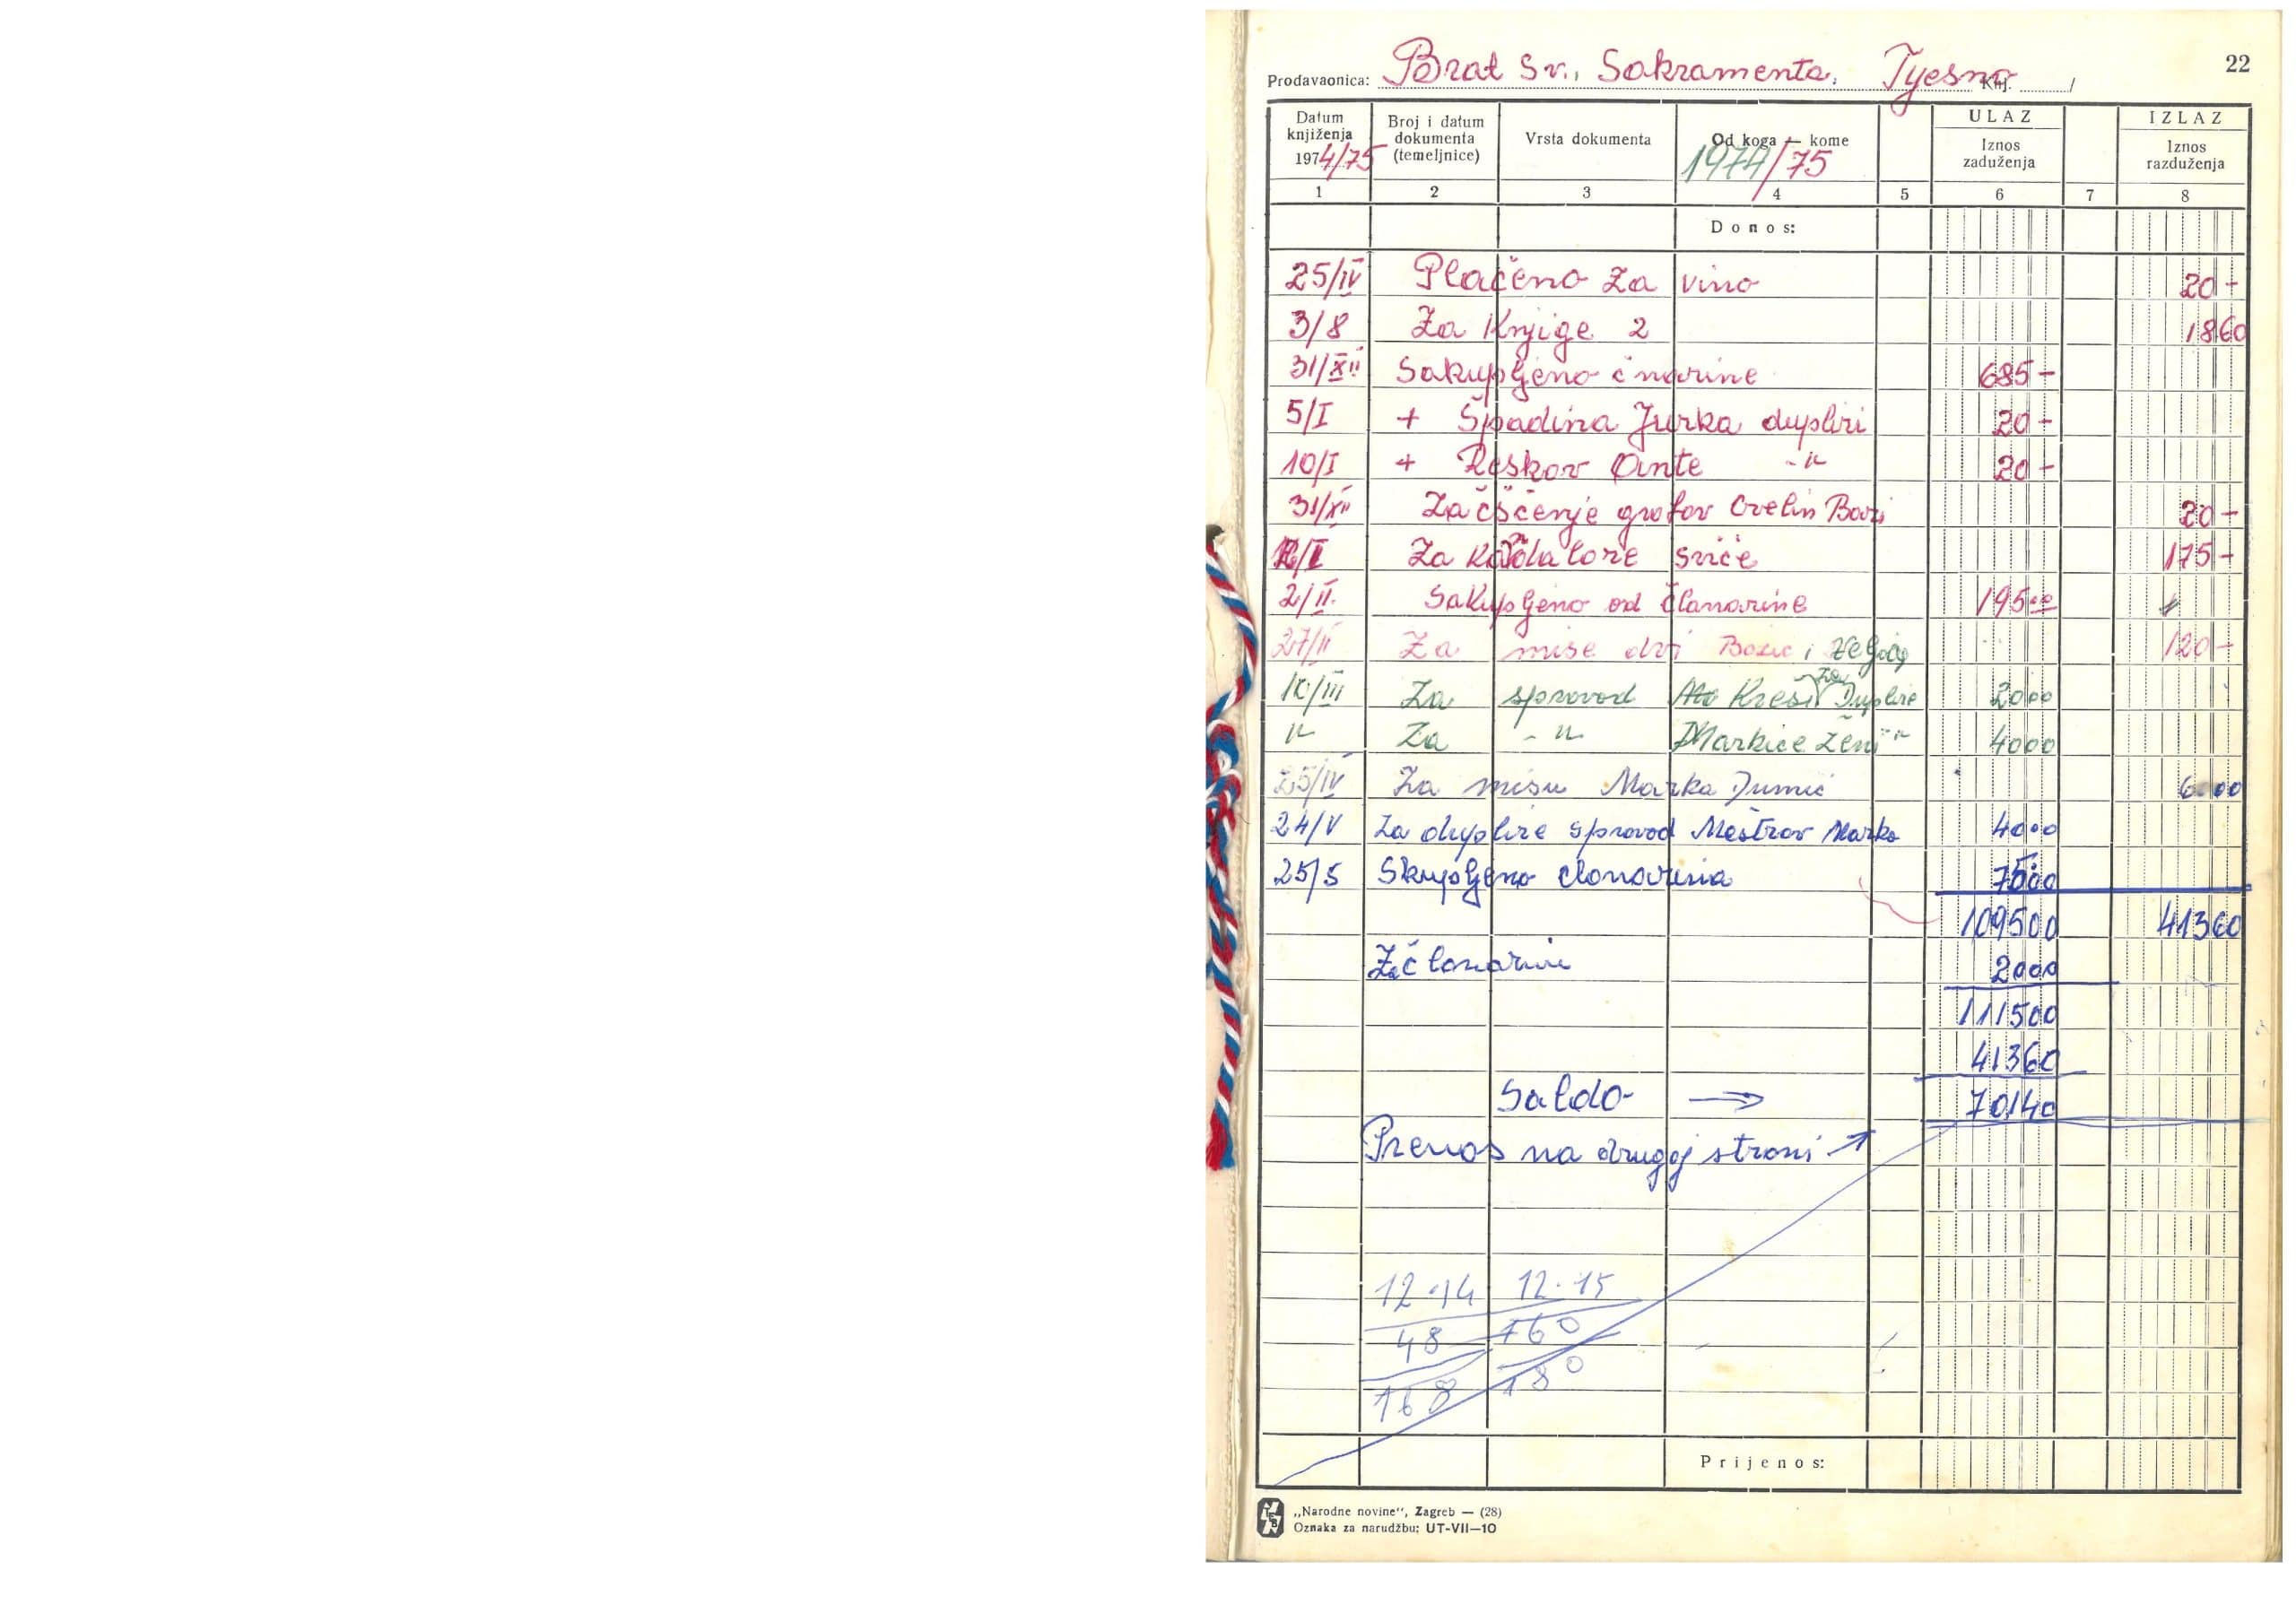 22
Prodavaonica: Brat Sv. Sakramenta. Tjesno Knj. /
Datum knjiženja 1974/75 Broj i datum dokumenta (temeljnice) Vrsta dokumenta Od koga — kome 1974/75 ULAZ Iznos zaduženja IZLAZ Iznos razduženja
1 2 3 4 5 6 7 8
Donos:
25/IV Plačeno za vino 20-
3/8 Za Knjige 2 1860
31/XII Sakupljeno 685-
5/I + Špadina Jurka dupliri 20-
10/I + Reskov Ante -"- 20-
31/XII Začšćenje 20-
Za sviće 175-
2/II. Sakupljeno od članarine 19500
27/II Za mise dvi Bozic i 120-
10/III Za sprovod Kreši za Duplire 2000
" Za -"- Markice 4000
25/IV Za misu Marka Jumić 6000
24/V Za duplire sprovod Meštrov Marko 4000
25/5 Skupljeno clonarina 7500
109500 41360
Za članarini 2000
111500
41360
Saldo → 70140
Prenos na drugoj strani
12·14 12·15
48 160
168 180
Prijenos:
„Narodne novine“, Zagreb — (28)
Oznaka za narudžbu: UT-VII—10